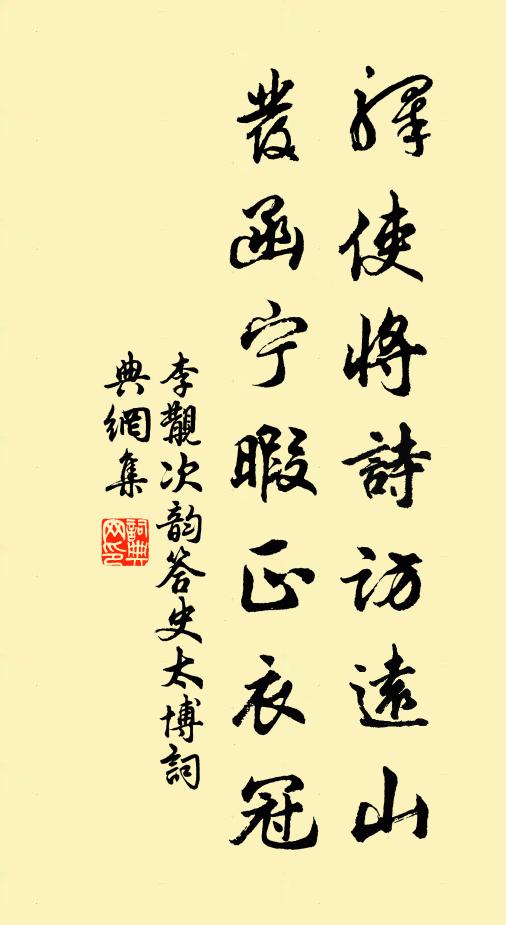 驛使將詩訪遠山
發函宁暇正衣冠
李覯次韵答史太博詞
典網集
詞典
网印